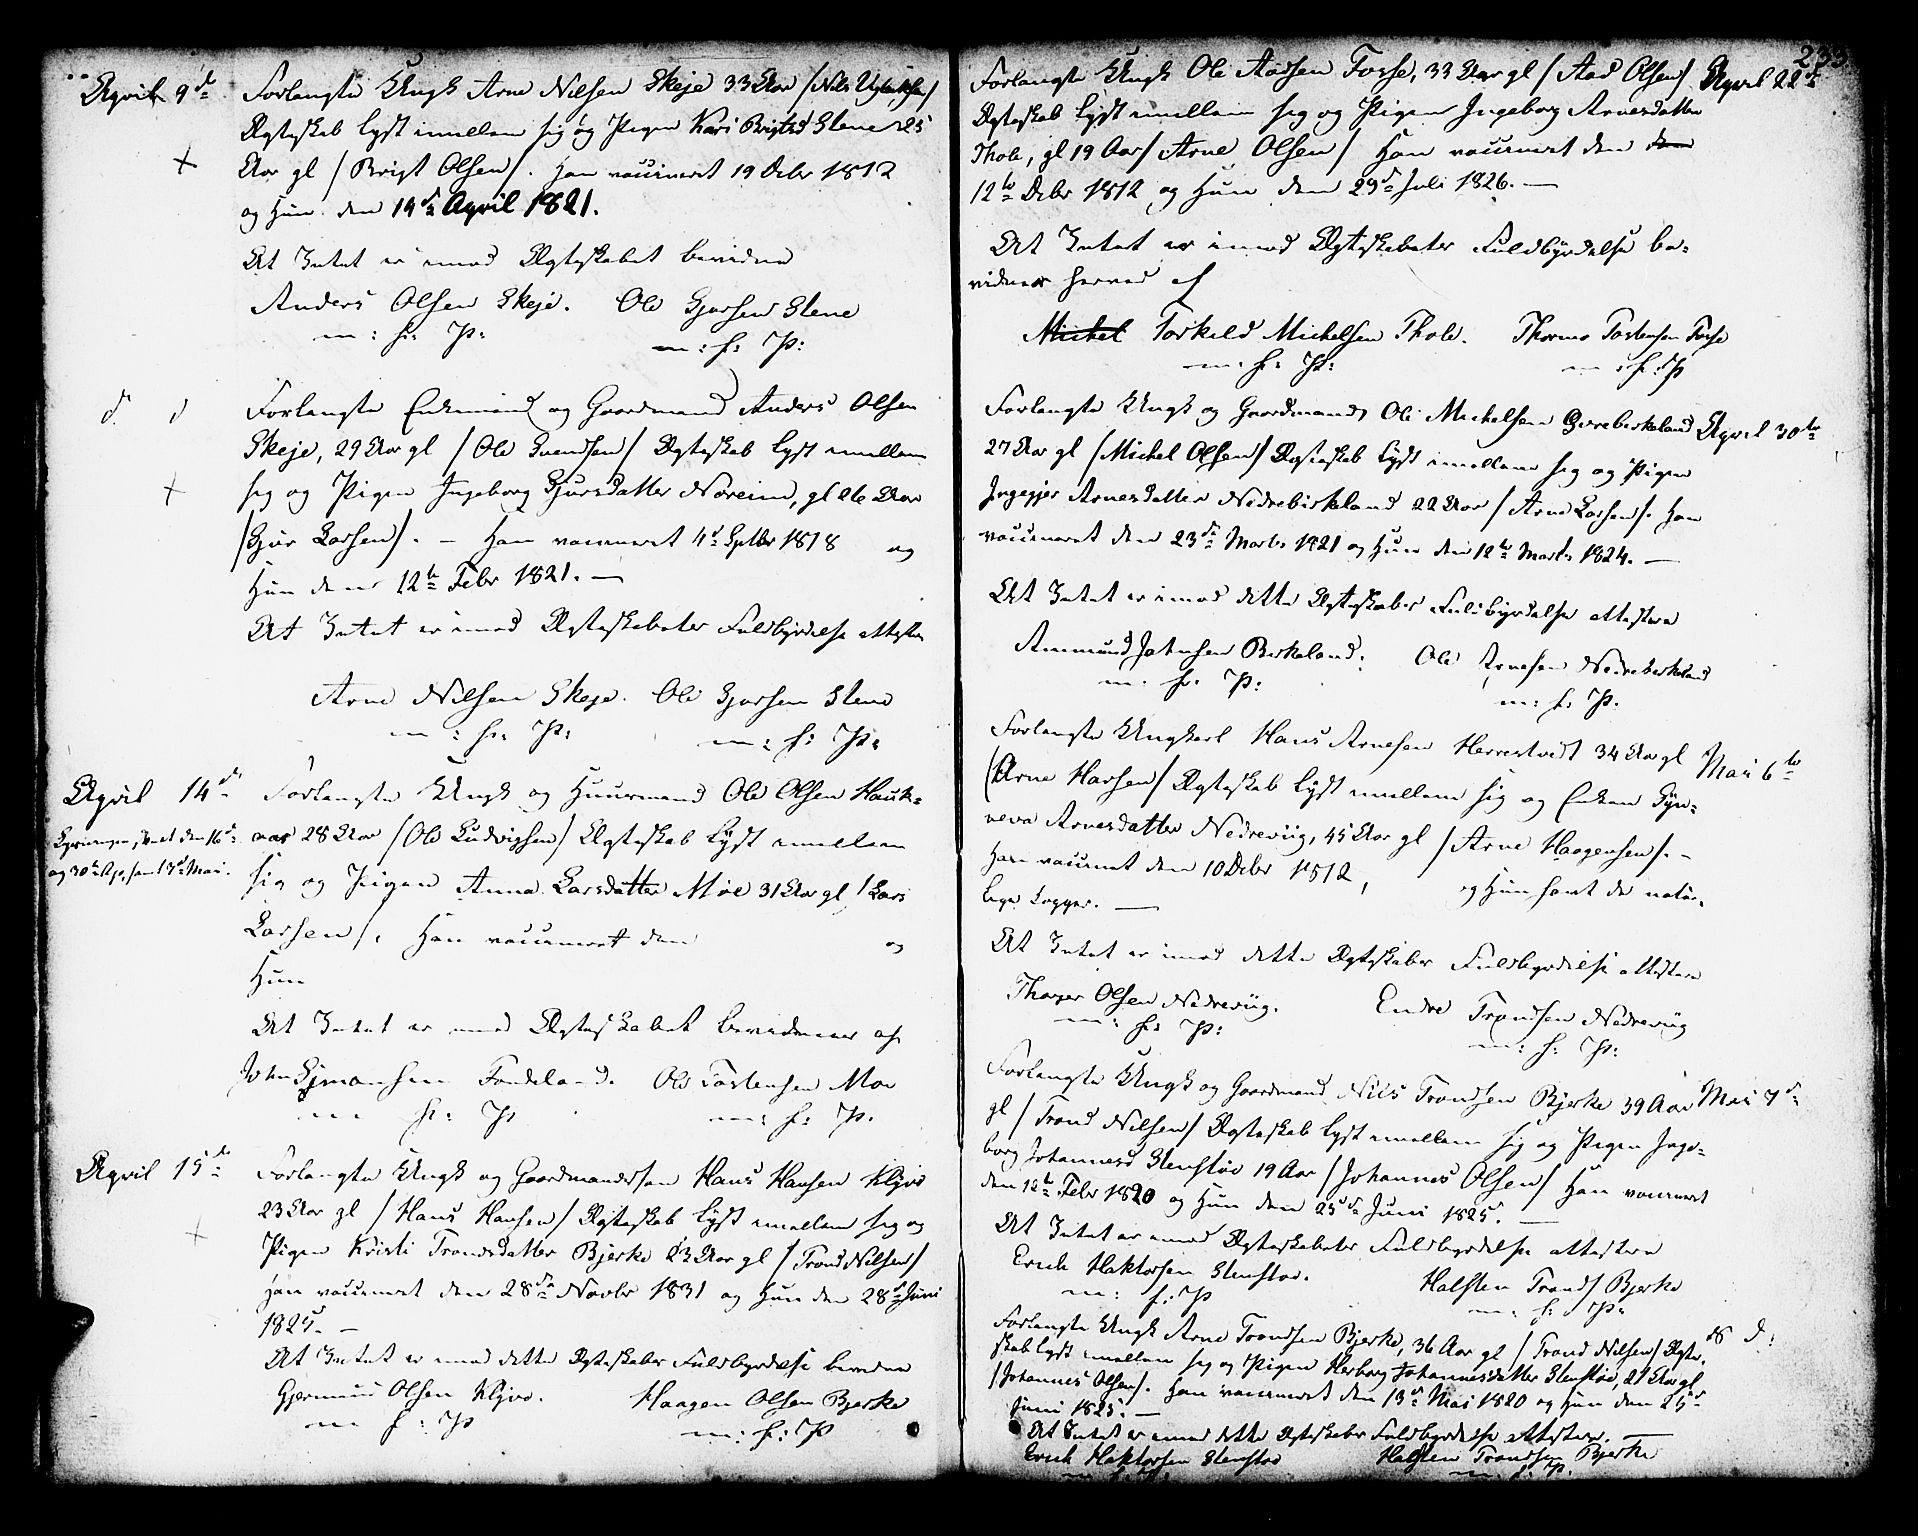 April 9de Forlangte Ungk Arne Nilsen Skeje 33 Aar /Nils
Ægteskab lyst imellem sig og Pigen Kari Brigtsd Stene 25
Aar gl /Brigt Olsen/. Han vaccineret 19 Decbr 1812
og Hun den 14de April 1821.
At Intet er imod Ægteskabet bevidne
Anders Olsen Skeje. Ole Gjorsen Stene
m: f: P: m: f: P:
d. d Forlangte Enkemand og Gaardmand Anders Olsen
Skeje, 29 Aar gl /Ole Svendsen/ Ægteskab lyst imellem
sig og Pigen Ingeborg Gjursdatter Noreim, gl Aar
/Gjur Larsen/. – Han vaccineret 4de Septbr 1818 og
Hun den 12te Febr 1821. —
At Intet er imod Ægteskabets Fuldbyrdelse attestere
Arne Nilsen Skeje. Ole Gjorsen Stene
m: f: P: m: f: P:
April 14de Forlangte Ungk og Huusmand Ole Olsen Hauk=
Lysningen skeet den 16de aas 28 Aar /Ole Ludvigsen/ Ægteskab lyst imellem
og 30te Apr. samt 7de Mai. sig og Pigen Anna Larsdatter Moe 31 Aar gl /Lars
Larsen/. Han vaccineret den og
Hun
At Intet er imod Ægteskabet bevidner af
John Simonsen Fondeland. Ole Torstensen Moe
m f: P m: f: P.
April 15de Forlangte Ungk og Gaardmandssøn Hans Hansen Klyve
23 Aar gl /Hans Hansen/ Ægteskab lyst imellem sig og
Pigen Kristi Trondsdatter Bjerke 23 Aar gl /Trond Nilsen/
Han vaccineret den 28de Novbr 1831 og Hun den 28de Juni
1825. —
At Intet er imod dette Ægteskabs Fuldbyrdelse bevidne
Gjermund Olsen Klyve. Haagen Olsen Bjerke
m f: P m: f: P
233
Forlangte Ungk Ole Aadsen Fosse, 33 Aar gl /Aad Olsen/ April 22de
Ægteskab lyst imellem sig og Pigen Ingeborg Arnesdatter
Thole, gl 19 Aar /Arne Olsen/ Han vaccineret den den
12te Decbr 1812 og Hun den 29de Juli 1826. —
At Intet er imod Ægteskabets Fuldbyrdelse be-
vidner herved af
Michel Torkild Michelsen Thole. Thormo Torstensen Fosse
m: f: P: m: f: P
Forlangte Ungk og Gaardmand Ole Michelsen Øvrebirkeland April 30te
27 Aar gl /Michel Olsen/ Ægteskab lyst imellem sig og Pigen
Ingegjer Arnesdatter Nedrebirkeland 22 Aar /Arne Larsen/. Han
vaccineret den 23de Marts 1821 og Hun den 12te Marts 1824. —
At Intet er imod dette Ægteskabs Fuldbyrdelse attestere
Ammund Johnsen Birkeland. Ole Arnesen Nedrebirkeland
m: f: P: m: f: P.
Forlangte Ungkarl Hans Arnesen Herrestvedt 34 Aar gl Mai 6te
/Arne Hansen/ Ægteskab lyst imellem sig og Enken Syn=
neva Arnesdatter Nedreviig, 45 Aar gl /Arne Haagensen/. –
Han vaccineret den 10 Decbr 1812, og Hun havt de natur-
lige Kopper. —
At Intet er imod dette Ægteskabs Fuldbyrdelse attestere
Thorger Olsen Nedreviig. Endre Trondsen Nedreviig
m: f: P: m: f: P:
Forlangte Ungk og Gaardmand Nils Trondsen Bjerke 39 Aar Mai 7de
gl /Trond Nilsen/ Ægteskab lyst imellem sig og Pigen Inge=
borg Johannesd Stenstøe 19 Aar /Johannes Olsen/ Han vaccineret
den 12te Febr 1820 og Hun den 25de Juni 1825. —
At Intet er imod Ægteskabets Fuldbyrdelse attestere
Erich Haktorsen Stenstøe. Halsten Trondsen Bjerke
m: f: P m: f: P:
Forlangte Ungk Arne Trondsen Bjerke, 36 Aar gl /Trond Nilsen/ Ægte- d. d:
skab lyst imellem sig og Pigen Herborg Johannesdatter Stenstøe, 21 Aar gl
/Johannes Olsen/. Han vaccineret den 13de Mai 1820 og Hun den 25de
Juni 1825. —
At Intet er imod dette Ægteskabs Fuldbyrdelse attestere. —
Erich Haktorsen Stenstøe Halsten Trondsen Bjerke
m: f: P: m: f: P.